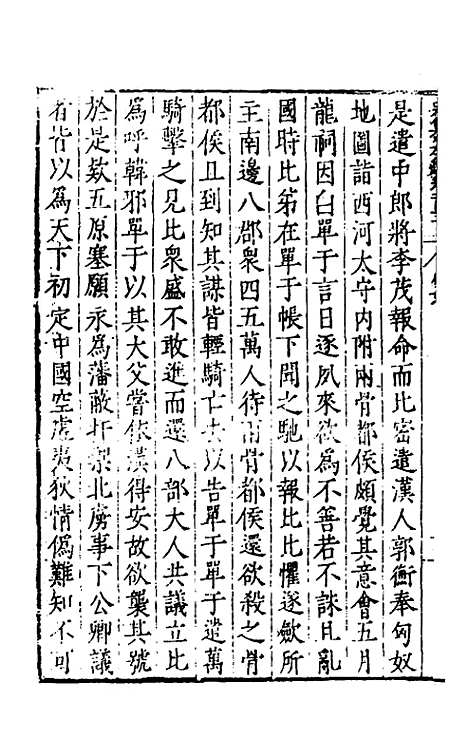 是遣中郎將李茂報命而比密遣漢人郭衡奉匈奴
地圖詣西河太守内附兩骨都侯頗覺其意會五月
龍祠因白單于言日逐夙來欲為不善若不誅且亂
國時比弟在單于帳下聞之馳以報比比懼遂斂所
主南邊八郡衆四五萬人待兩骨都侯還欲殺之骨
都侯且到知其謀皆輕騎亡去以告單于單于遣萬
騎擊之見比衆盛不敢進而還八部大人共議立比
為呼韓邪單于以其大父嘗依漢得安故欲襲其號
於是欵五原塞願永為藩蔽扞禦北虜事下公卿議
者皆以為天下初定中國空虚夷狄情偽難知不可